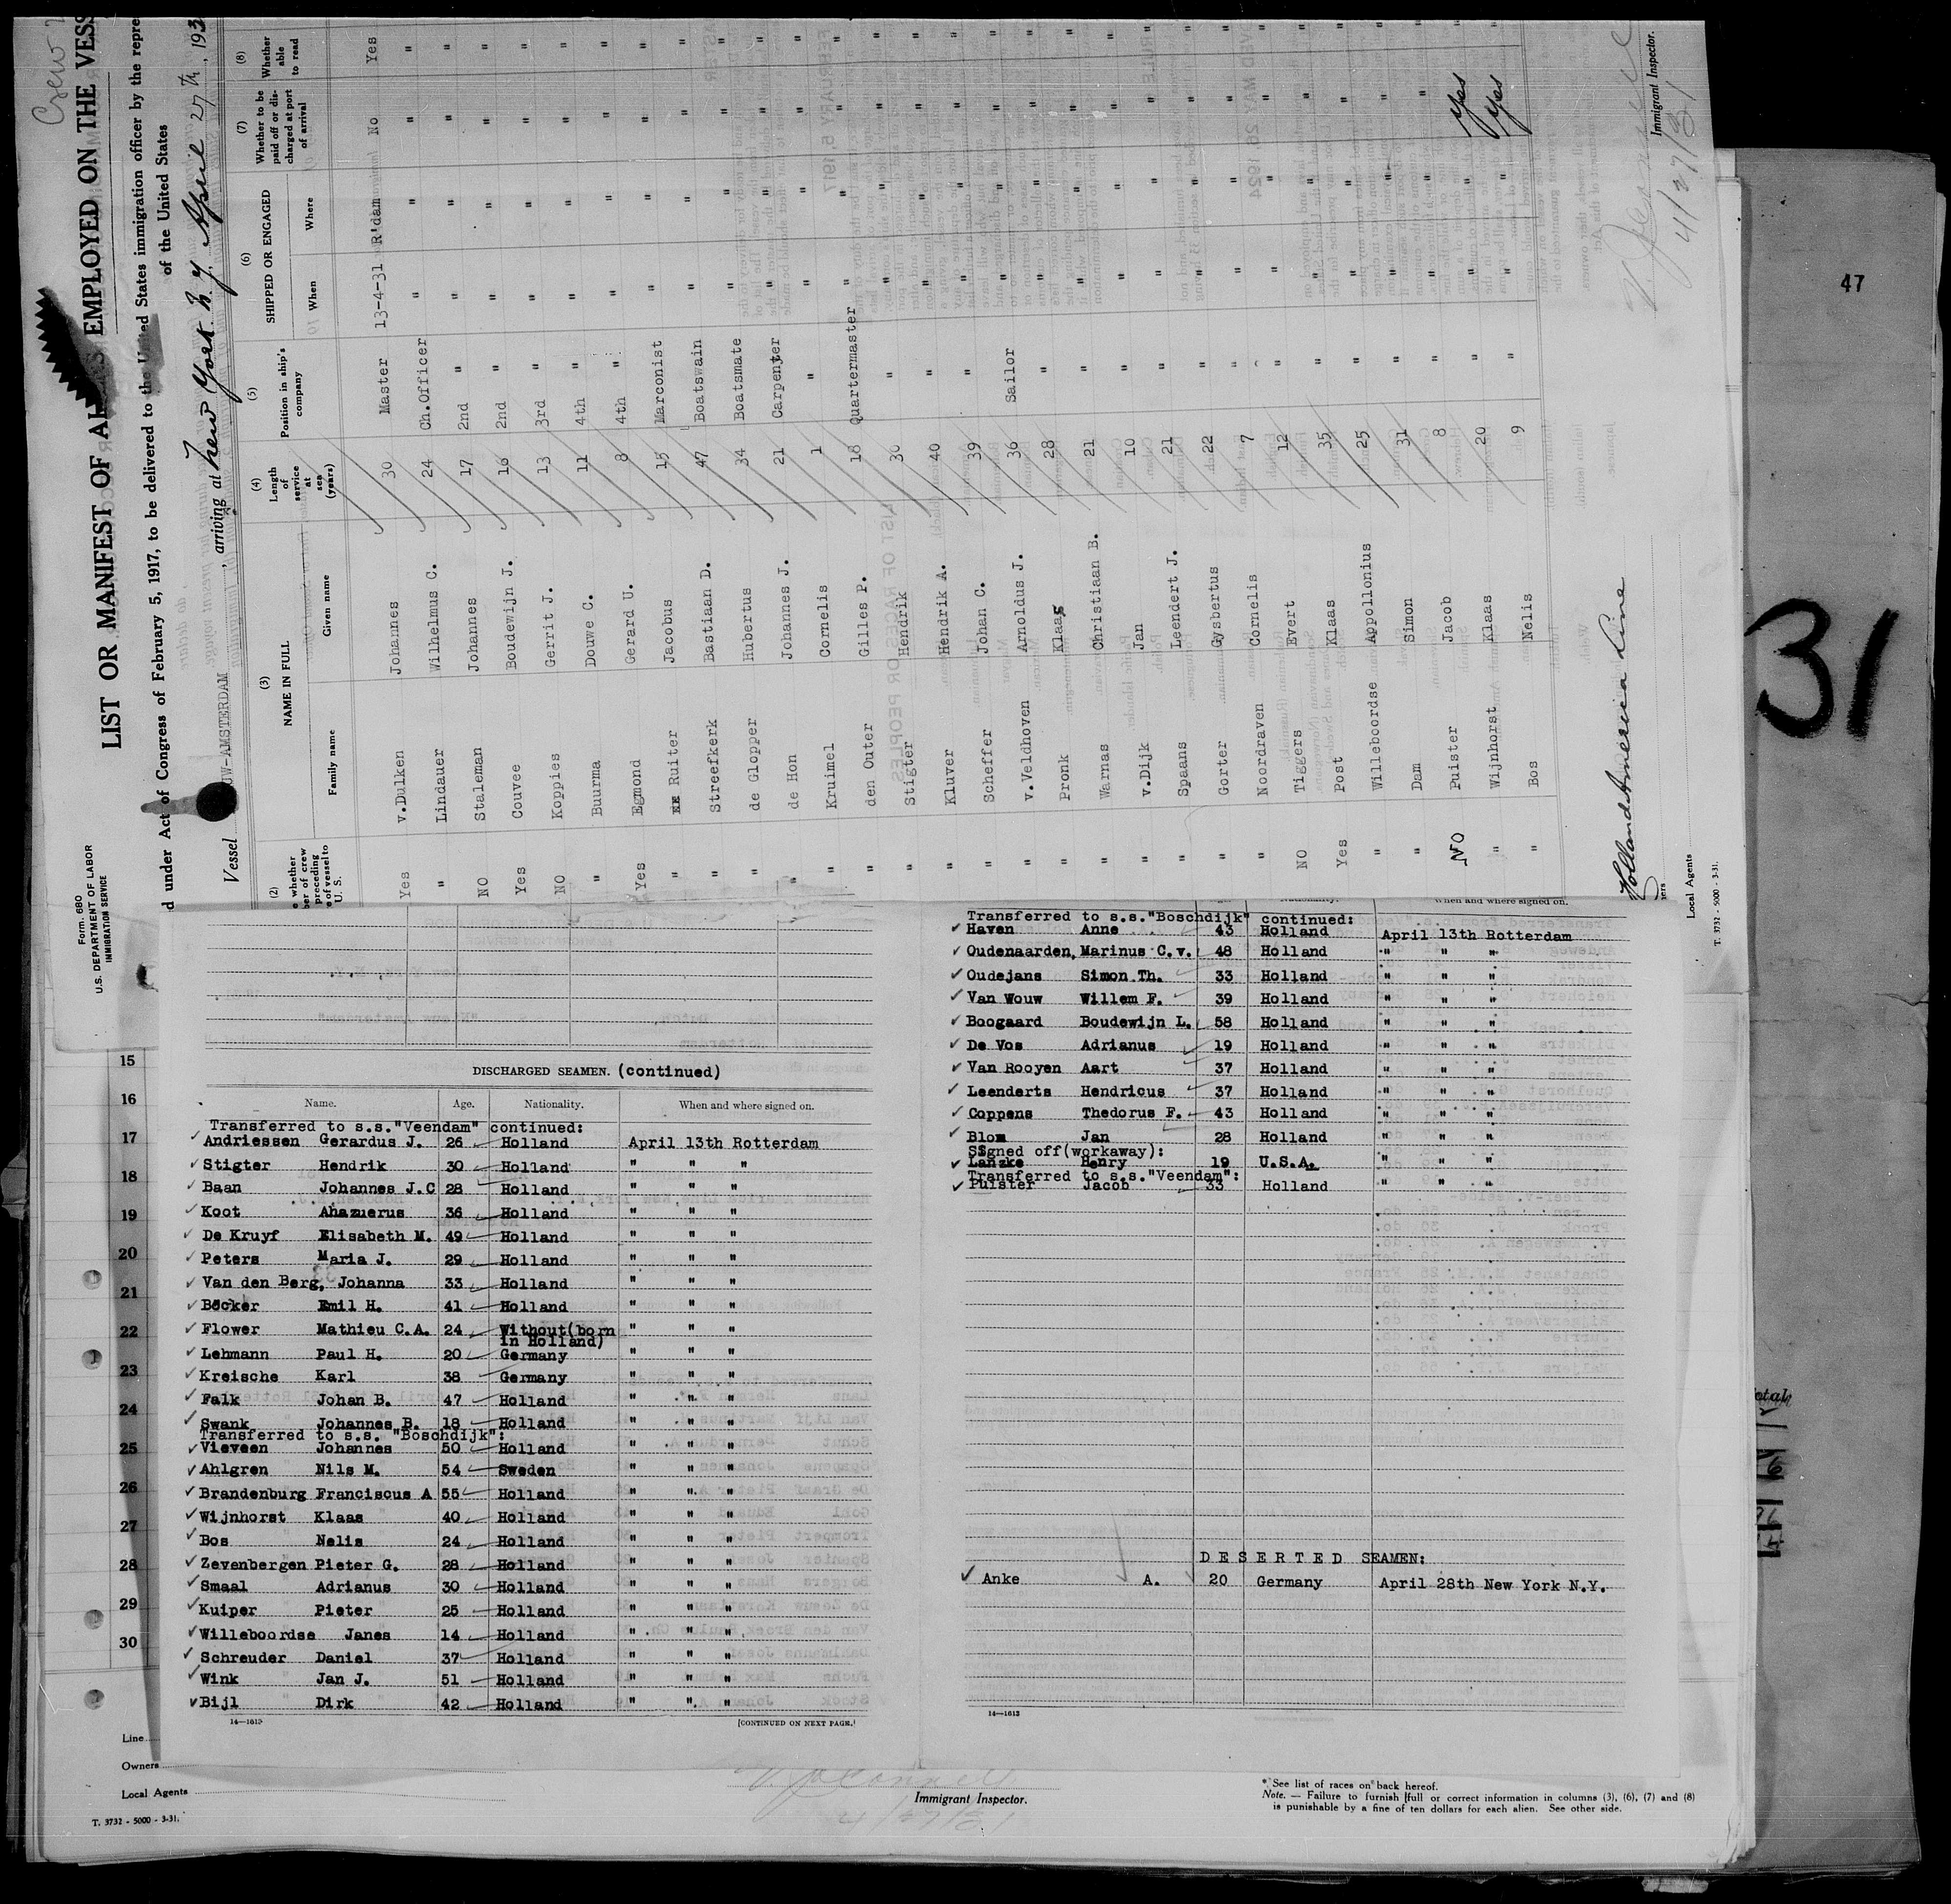 Crew
Form 680
U.S. DEPARTMENT OF LABOR
IMMIGRATION SERVICE
LIST OR MANIFEST OF AL EMPLOYED ON THE VESS
d under Act of Congress of February 5, 1917, to be delivered to the United States immigration officer by the repre
of the United States
Vessel UW-AMSTERDAM , arriving at New York. N.Y. April 27th, 193
(2) (3) (4) (5) (6) (7) (8)
whether ber of crew preceding e of vessel to U. S.
NAME IN FULL
Family name Given name
Length of service at sea (years)
Position in ship's company
SHIPPED OR ENGAGED
When Where
Whether to be paid off or dis- charged at port of arrival
Whether able to read
Yes v.Dulken Johannes 30 Master 13-4-31 R'dam No Yes
" Lindauer Wilhelmus C. 24 Ch.Officer " " " "
NO Staleman Johannes 17 2nd " " " " "
Yes Couvee Boudewijn J. 16 2nd " " " " "
NO Koppies Gerrit J. 13 3rd " " " " "
" Buurma Douwe C. 11 4th " " " " "
Yes Egmond Gerard U. 8 4th " " " " "
" Ruiter Jacobus 15 Marconist " " " "
" Streefkerk Bastiaan D. 47 Boatswain " " " "
" de Glopper Hubertus 34 Boatsmate " " " "
" de Hon Johannes J. 21 Carpenter " " " "
" Kruimel Cornelis 1 " " " " "
" den Outer Gilles P. 18 Quartermaster " " " "
" Stigter Hendrik 30 " " " " "
" Kluver Hendrik A. 40 " " " " "
" Scheffer Johan C. 39 " " " " "
" v.Veldhoven Arnoldus J. 36 Sailor " " " "
" Pronk Klaas 28 " " " " "
" Warnas Christiaan B. 21 " " " " "
" v.Dijk Jan 10 " " " " "
" Spaans Leendert J. 21 " " " " "
" Gorter Gysbertus 22 " " " " "
" Noordraven Cornelis 7 " " " " "
NO Tiggers Evert 12 " " " " "
Yes Post Klaas 35 " " " " "
" Willeboordse Appollonius 25 " " " " "
" Dam Simon 31 " " " " "
NO Puister Jacob 8 " " " " "
" Wijnhorst Klaas 20 " " " Yes "
" Bos Nelis 9 " " " Yes "
Holland America Line
Local Agents
Immigrant Inspector.
4/27/31
T. 3732 - 5000 - 3-31.
47
31
15
16
17
18
19
20
21
22
23
24
25
26
27
28
29
30
DISCHARGED SEAMEN. (continued)
Name. Age. Nationality. When and where signed on.
Transferred to s.s."Veendam" continued:
Andriessen Gerardus J. 26 Holland April 13th Rotterdam
Stigter Hendrik 30 Holland " " "
Baan Johannes J.C 28 Holland " " "
Koot Ahazuerus 36 Holland " " "
De Kruyf Elisabeth M. 49 Holland " " "
Peters Maria J. 29 Holland " " "
Van den Berg, Johanna 33 Holland " " "
Böcker Emil H. 41 Holland " " "
Flower Mathieu C.A. 24 Without(born in Holland) " " "
Lehmann Paul H. 20 Germany " " "
Kreische Karl 38 Germany " " "
Falk Johan B. 47 Holland " " "
Swank Johannes B. 18 Holland " " "
Transferred to s.s. "Boschdijk":
Vieveen Johannes 50 Holland " " "
Ahlgren Nils M. 54 Sweden " " "
Brandenburg Franciscus A 55 Holland " " "
Wijnhorst Klaas 40 Holland " " "
Bos Nelis 24 Holland " " "
Zevenbergen Pieter G. 28 Holland " " "
Smaal Adrianus 30 Holland " " "
Kuiper Pieter 25 Holland " " "
Willeboordse Janes 14 Holland " " "
Schreuder Daniel 37 Holland " " "
Wink Jan J. 51 Holland " " "
Bijl Dirk 42 Holland " " "
14—1613 [CONTINUED ON NEXT PAGE.]
When and where signed on.
Transferred to s.s."Boschdijk" continued:
Haven Anne 43 Holland April 13th Rotterdam
Oudenaarden, Marinus C.v. 48 Holland " " "
Oudejans Simon Th. 33 Holland " " "
Van Wouw Willem F. 39 Holland " " "
Boogaard Boudewijn L. 58 Holland " " "
De Vos Adrianus 19 Holland " " "
Van Rooyen Aart 37 Holland " " "
Leenderts Hendricus 37 Holland " " "
Coppens Thedorus F. 43 Holland " " "
Blom Jan 28 Holland " " "
Signed off(workaway):
Lanzke Henry 19 U.S.A. " " "
Transferred to s.s."Veendam":
Puister Jacob 33 Holland " " "
DESERTED SEAMEN:
Anke A. 20 Germany April 28th New York N.Y.
14—1613
Line
Owners
Local Agents
T. 3732 - 5000 - 3-31.
Immigrant Inspector.
4/27/31
* See list of races on back hereof.
Note. — Failure to furnish full or correct information in columns (3), (6), (7) and (8)
is punishable by a fine of ten dollars for each alien. See other side.